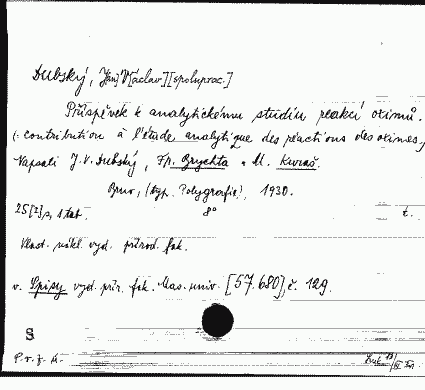 Dubský, J[an] V[áclav] [spoluprac.]
Příspěvek k analytickému studiu reakcí oximů.
(: contribution à l'étude analytique des réactions des oximes,)
Napsali J. V. Dubský, Fr. Brychta a M. Kuraš.
Brno, (typ. Polygrafie), 1930.
25 [I] s, 1 tab. 8° t.
Vlast. nákl. vyd. přírod. fak.
v. Spisy vyd. přír. fak. Mas. univ. [57.680], č. 129.
S
P. r. f. M.